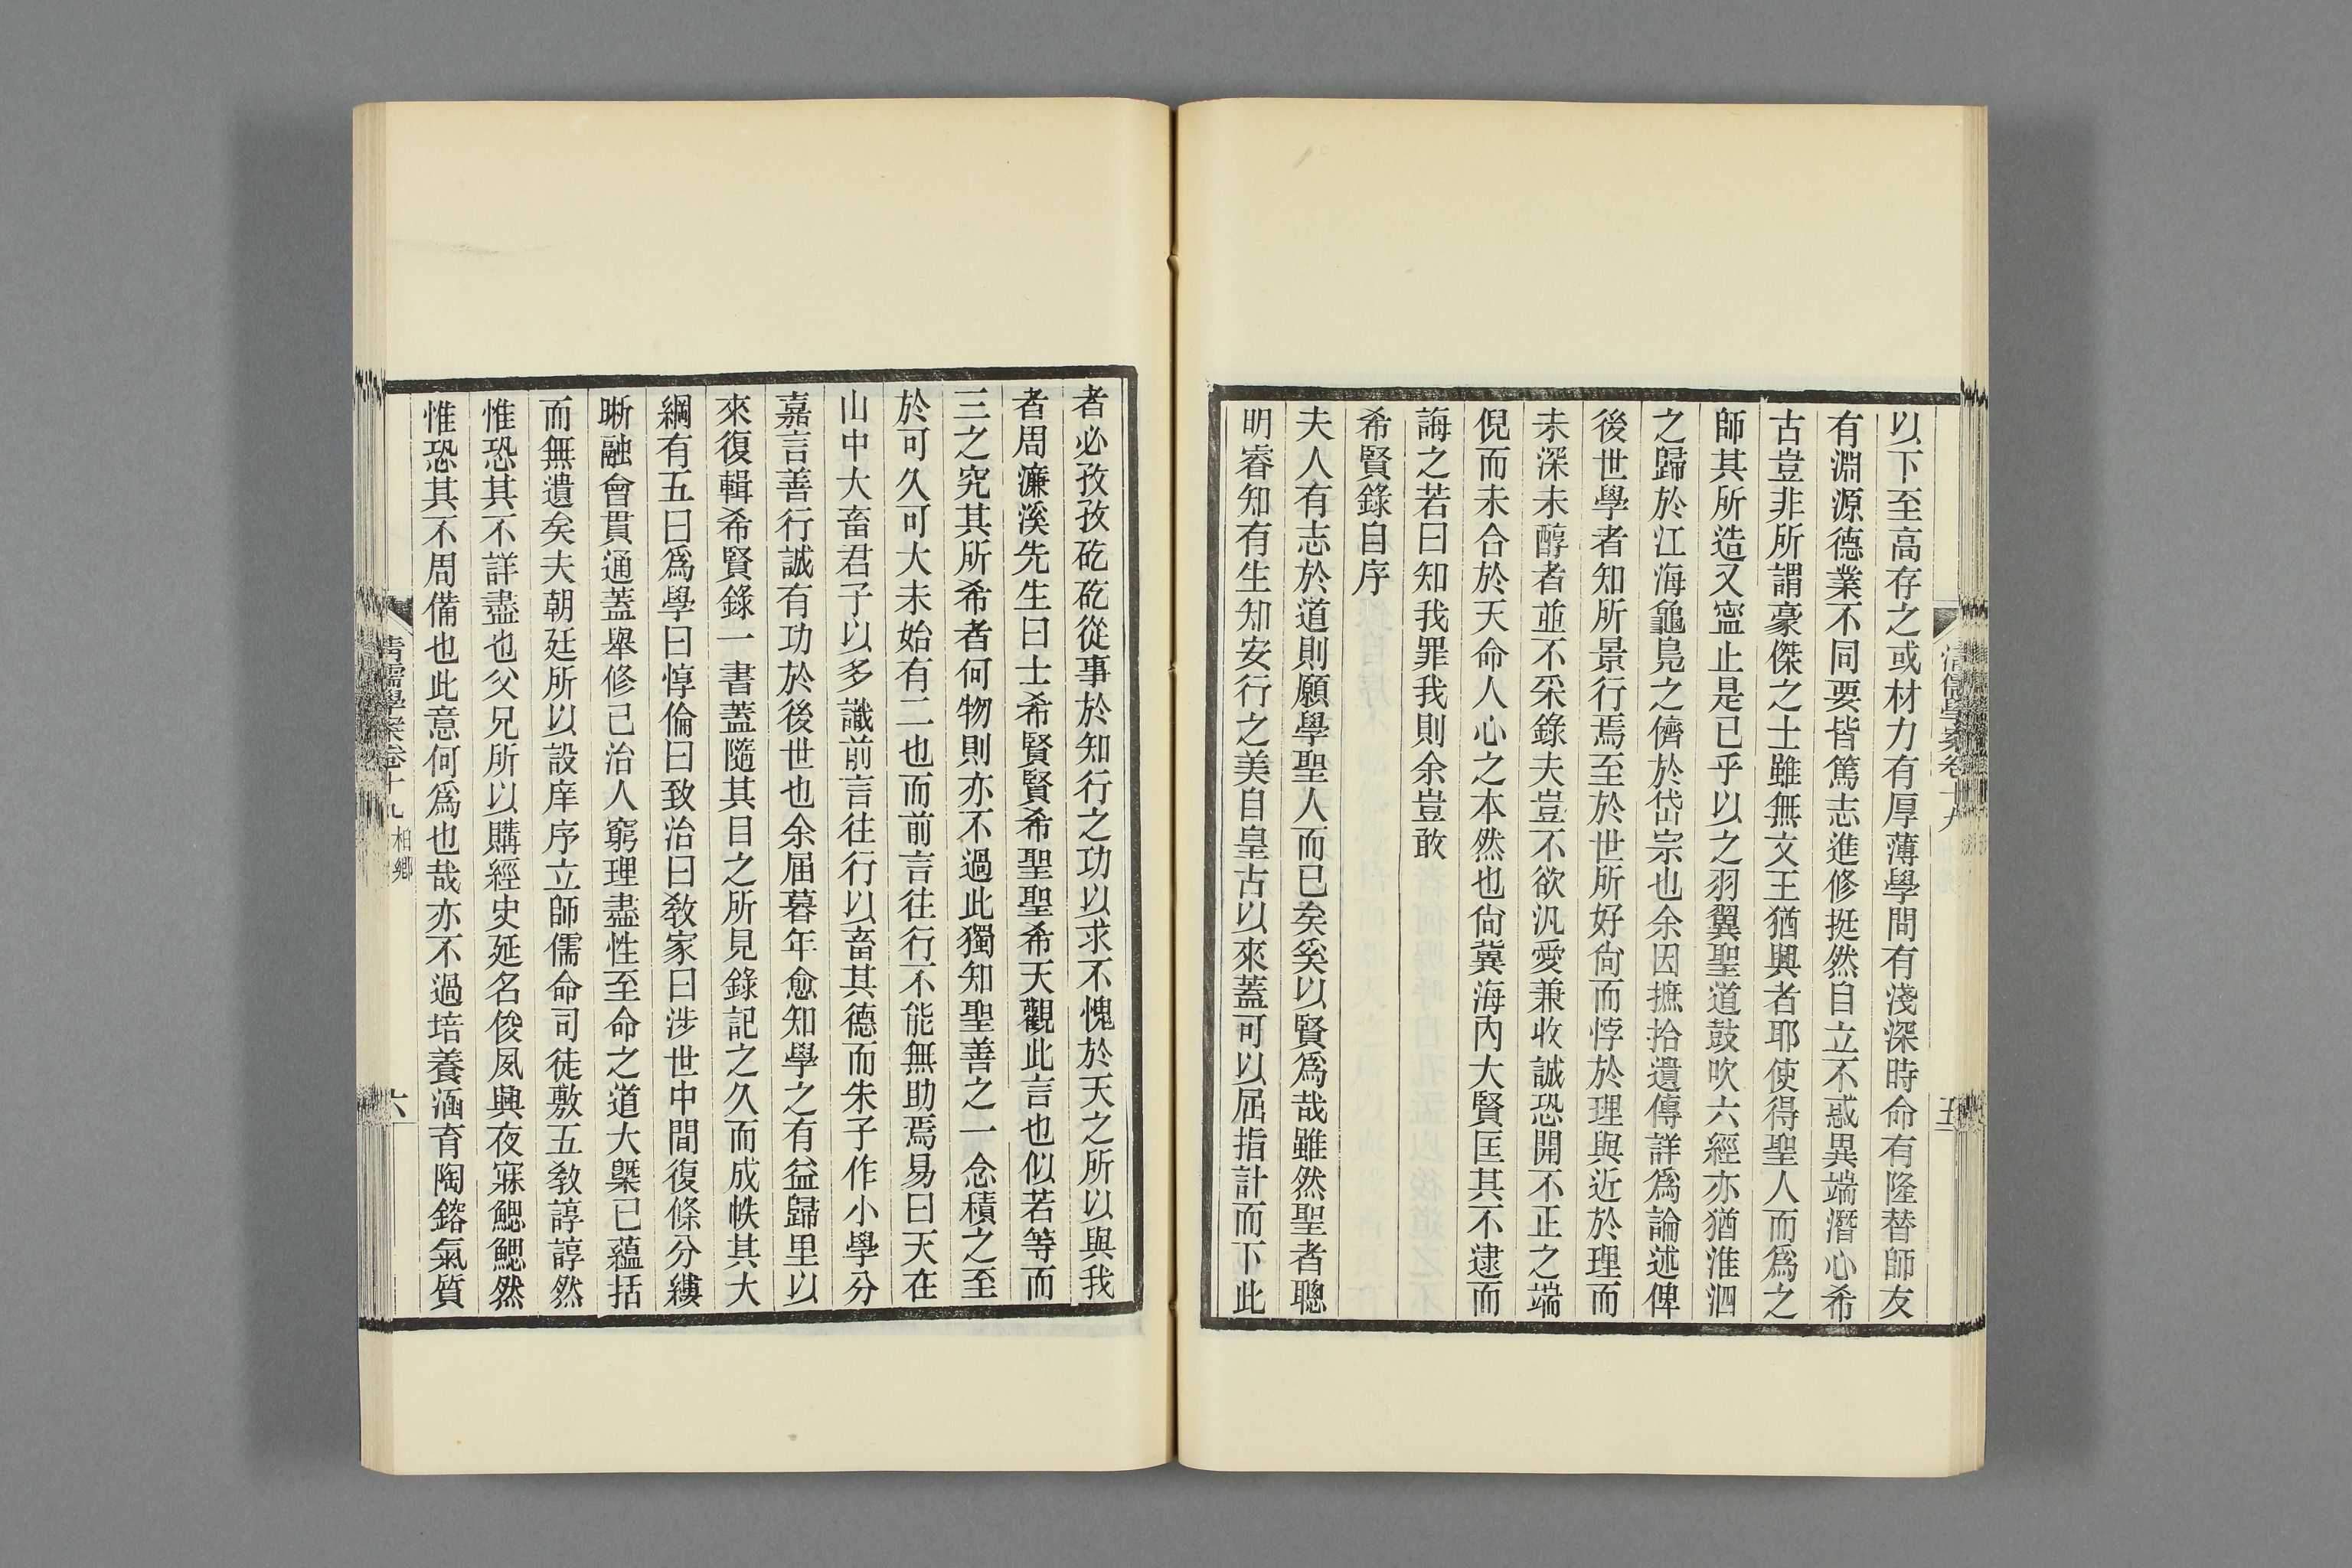 以下至高存之或材力有厚薄學問有淺深時命有隆替師友
有淵源德業不同要皆篤志進修挺然自立不惑異端潛心希
古豈非所謂豪傑之士雖無文王猶興者耶使得聖人而爲之
師其所造又寍止是已乎以之羽翼聖道鼓吹六經亦猶淮泗
之歸於江海龜鳧之儕於岱宗也余因摭拾遺傳詳爲論述俾
後世學者知所景行焉至於世所好尙而悖於理與近於理而
未深未醇者並不采錄夫豈不欲汎愛兼收誠恐開不正之端
倪而未合於天命人心之本然也尙冀海內大賢匡其不逮而
誨之若曰知我罪我則余豈敢
希賢錄自序
夫人有志於道則願學聖人而已矣奚以賢爲哉雖然聖者聰
明睿知有生知安行之美自皇古以來蓋可以屈指計而下此
清儒學案卷十九
五
者必孜孜矻矻從事於知行之功以求不愧於天之所以與我
者周濂溪先生曰士希賢賢希聖聖希天觀此言也似若等而
三之究其所希者何物則亦不過此獨知聖善之一念積之至
於可久可大未始有二也而前言往行不能無助焉易曰天在
山中大畜君子以多識前言往行以畜其德而朱子作小學分
嘉言善行誠有功於後世也余届暮年愈知學之有益歸里以
來復輯希賢錄一書蓋隨其目之所見錄記之久而成帙其大
綱有五曰爲學曰惇倫曰致治曰敎家曰涉世中間復條分縷
晰融會貫通蓋舉修己治人窮理盡性至命之道大槩已蘊括
而無遺矣夫朝廷所以設庠序立師儒命司徒敷五敎諄諄然
惟恐其不詳盡也父兄所以購經史延名俊夙興夜寐鰓鰓然
惟恐其不周備也此意何爲也哉亦不過培養涵育陶鎔氣質
清儒學案卷十九 柏鄉
六